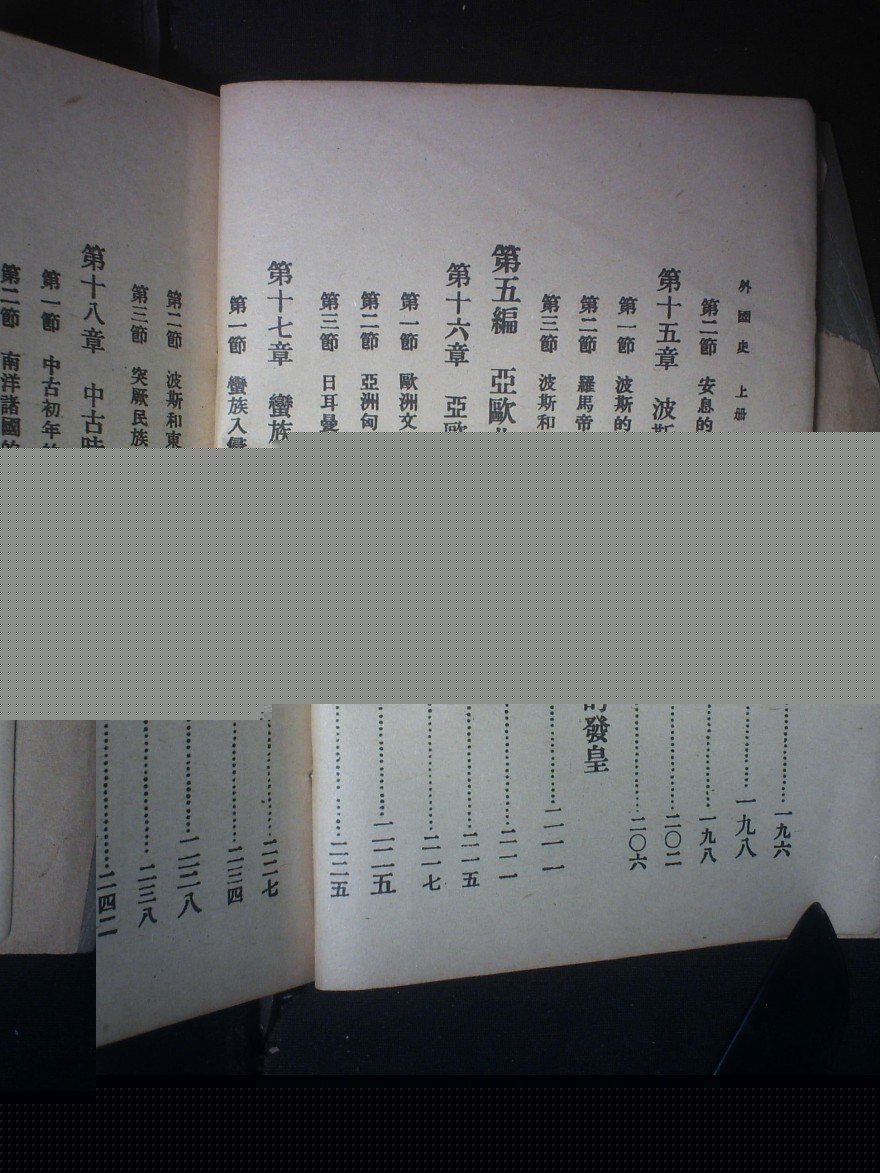 外國史 上册
第二節 安息的……一九六
第十五章 波斯……一九八
第一節 波斯的……一九八
第二節 羅馬帝……二〇二
第三節 波斯和……二〇六
第五編 亞歐 發皇
第十六章 亞歐……二一一
第一節 歐洲文……二一一
第二節 亞洲匈……二一五
第三節 日耳曼……二一七
第十七章 蠻族……二二五
第一節 蠻族入侵……二二五
第二節 波斯和東……二二七
第三節 突厥民族……二三四
第十八章 中古時……二三八
第一節 中古初年……二三八
第二節 南洋諸國的……二四二